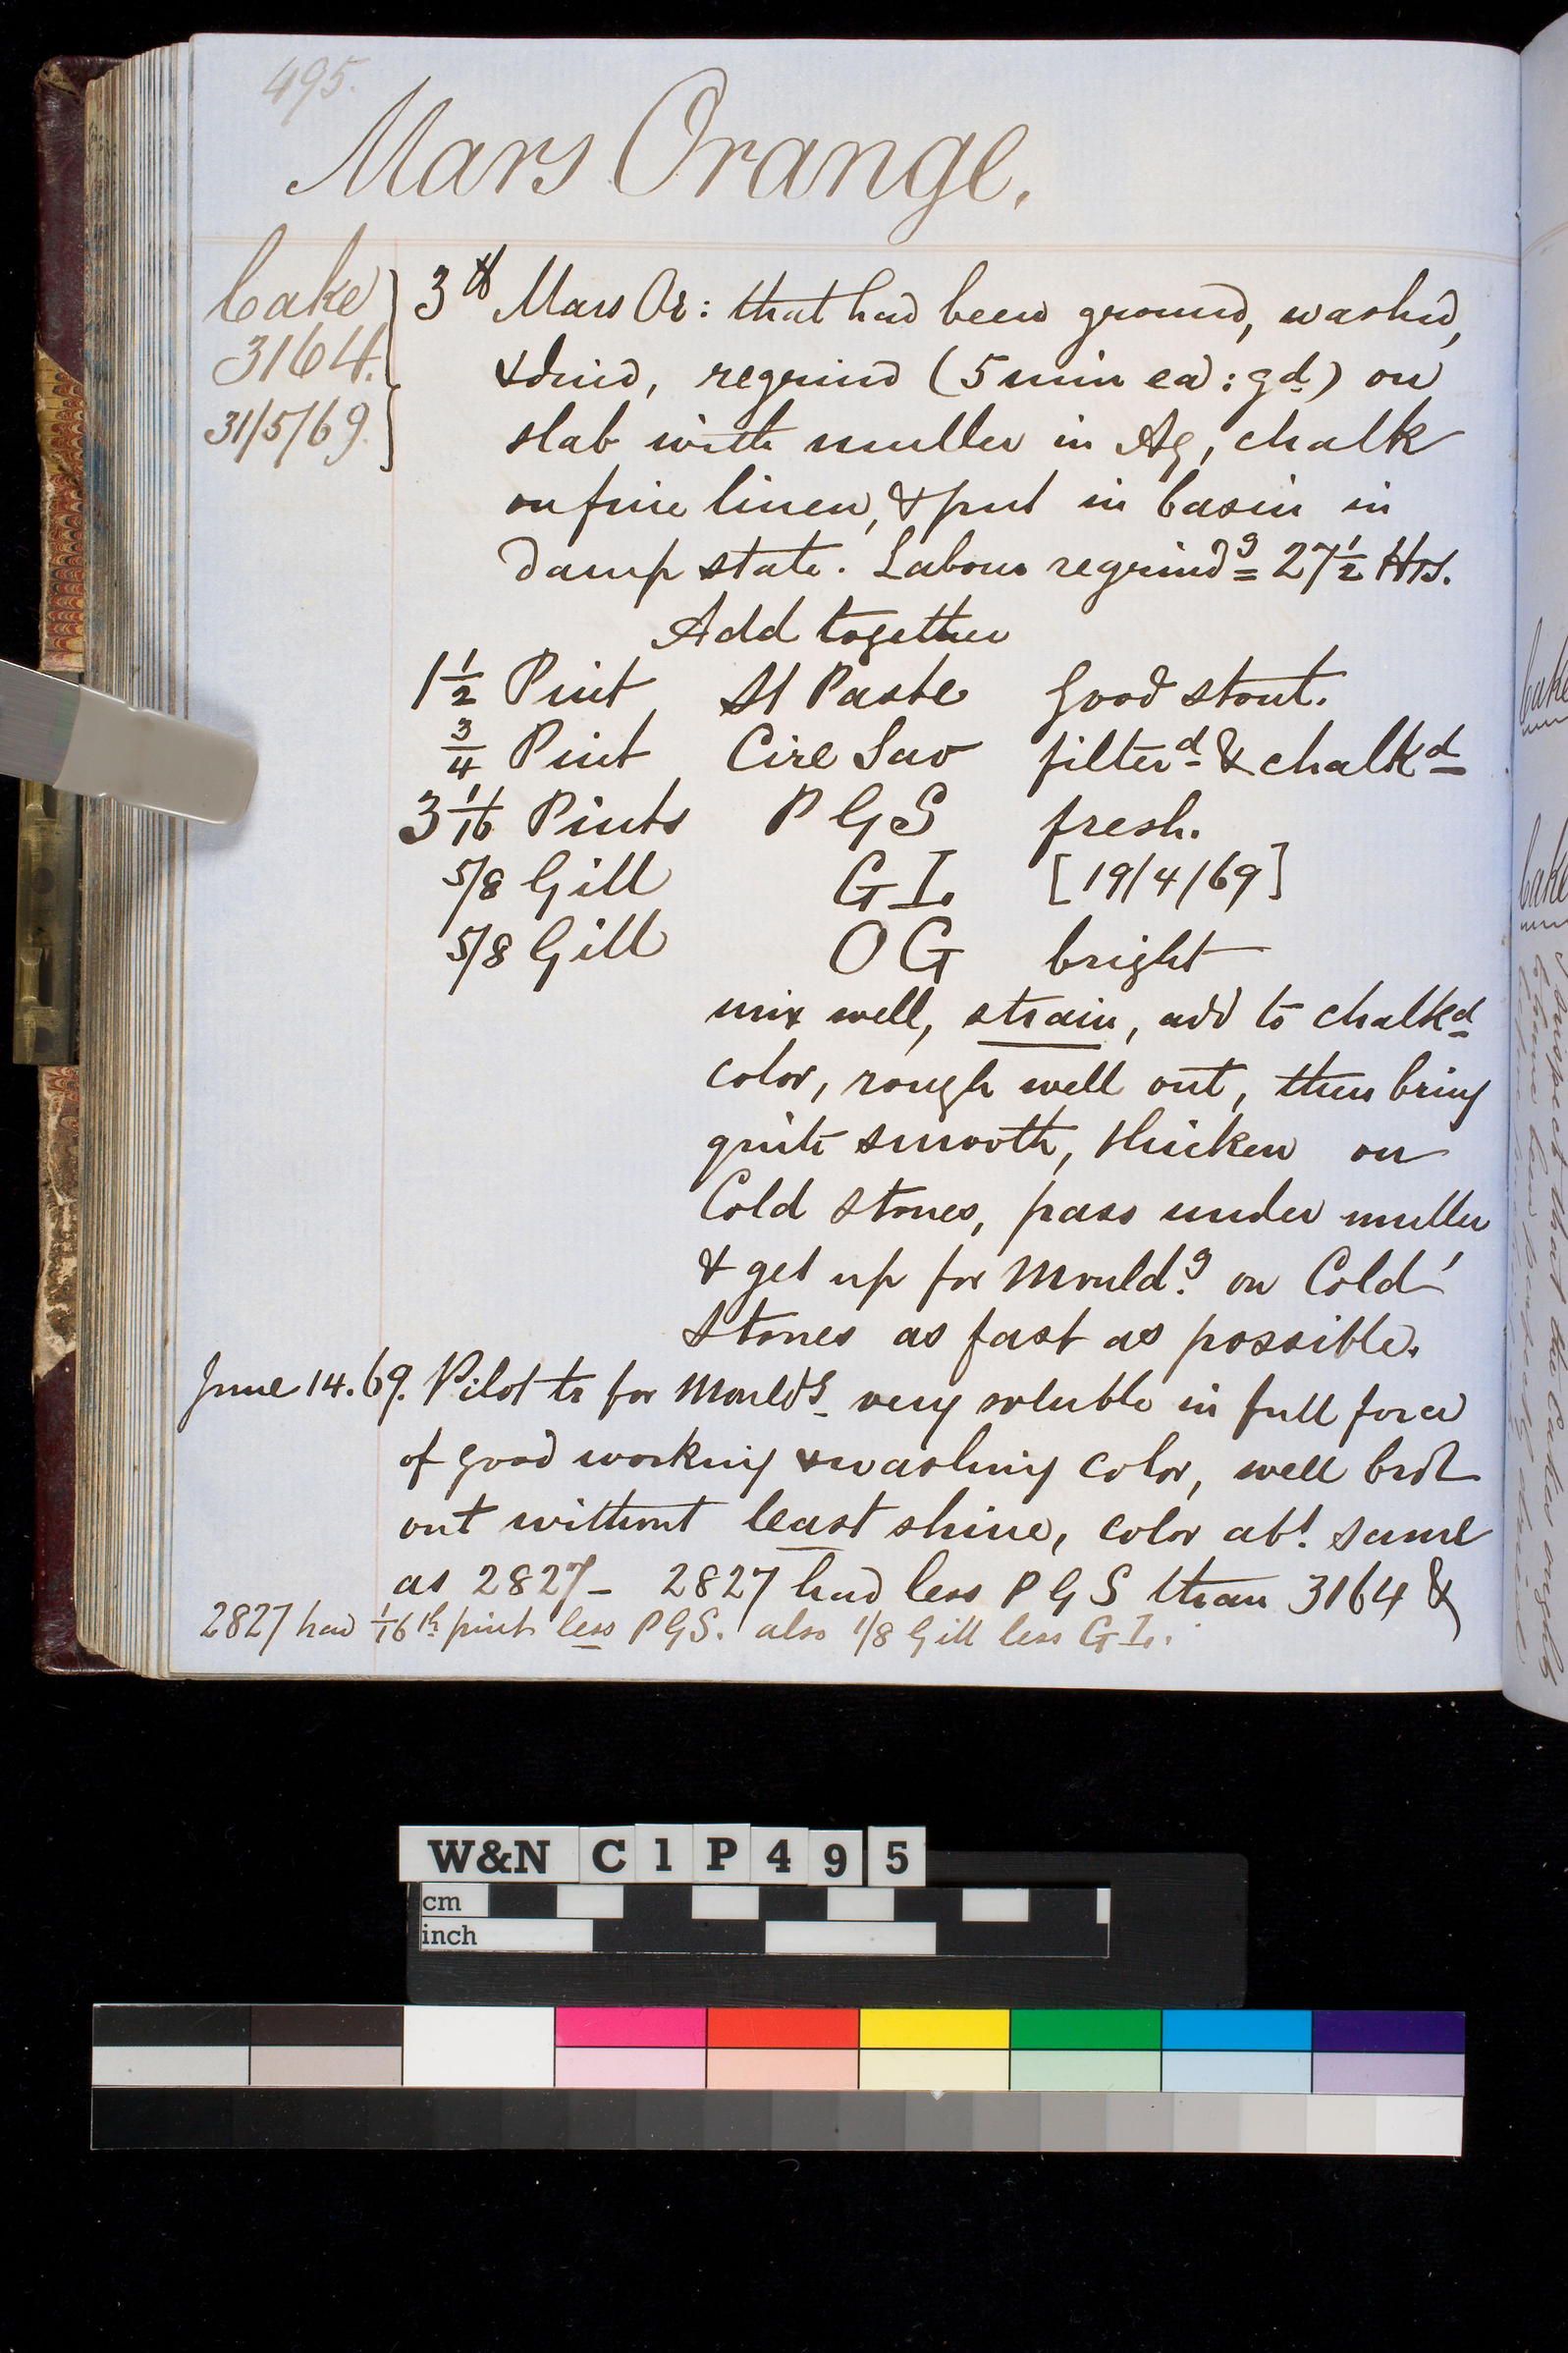 495.
Mars Orange.
Cake
3164.
31/5/69.
3 ℔ Mars Or: that had been ground, washd,
& dried, regrind (5 min ea: gd) on
slab with muller in Aq, chalk
on fine linen, & put in basin in
damp state. Labour regrindg 27½ Hrs.
Add together
1½ Pint St Paste Good stout.
¾ Pint Cire Sav filterd & chalkd
3 1/16 Pints P G S fresh.
5/8 Gill G I. [19/4/69]
5/8 Gill O G bright
mix well, strain, add to chalkd
color, rough well out, then bring
quite smooth, thicken on
Cold stones, pass under muller
& get up for Mouldg. on Cold
Stones as fast as possible.
June 14.69. Pilot tr for Mouldg very soluble in full force
of good working & washing color, well brot
out without least shine, color abt. same
as 2827 – 2827 had less P G S than 3164 &
2827 had 1/16th pint less P G S. also 1/8 Gill less G I.
W&N C1P495
cm
inch